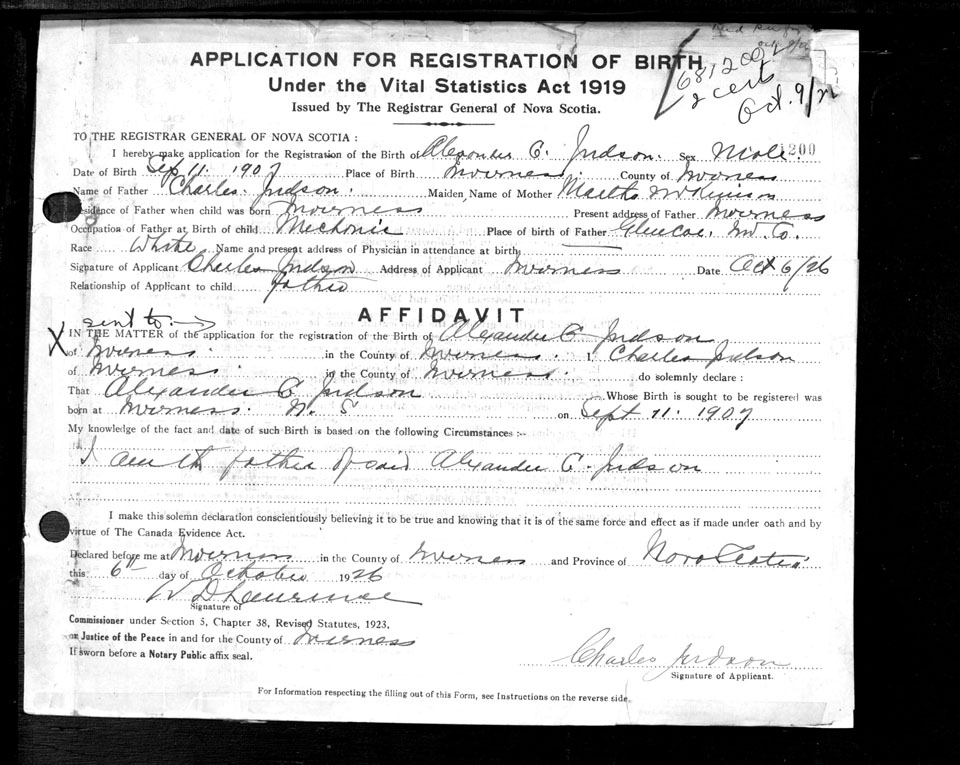 APPLICATION FOR REGISTRATION OF BIRTH
Under the Vital Statistics Act 1919
Issued by The Registrar General of Nova Scotia.
6812002
2 certs
Oct. 9/
TO THE REGISTRAR GENERAL OF NOVA SCOTIA :
I hereby make application for the Registration of the Birth of Alexander C. Judson. Sex Male. 200
Date of Birth Sep 11. 1907 Place of Birth Inverness. County Inverness
Name of Father Charles. Judson. Maiden Name of Mother Martha McKinnon
Residence of Father when child was born Inverness Present address of Father Inverness
Occupation of Father at Birth of child Mechanic Place of birth of Father Glencoe. Inv. Co.
Race White Name and present address of Physician in attendance at birth
Signature of Applicant Charles Judson Address of Applicant Inverness Date Oct 6/26
Relationship of Applicant to child father
AFFIDAVIT
sent to.
X IN THE MATTER of the application for the registration of the Birth of Alexander C Judson
of Inverness. in the County of Inverness. I Charles Judson
of Inverness. in the County of Inverness. do solemnly declare :
That Alexander C Judson Whose Birth is sought to be registered was
born at Inverness. N. S on Sept 11. 1907
My knowledge of the fact and date of such Birth is based on the following Circumstances :-
I am the father of said Alexander C. Judson
I make this solemn declaration conscientiously believing it to be true and knowing that it is of the same force and effect as if made under oath and by
virtue of The Canada Evidence Act.
Declared before me at Inverness in the County of Inverness and Province of Nova Scotia
this 6th day of October 1926
D Lawrence
Signature of
Commissioner under Section 5, Chapter 38, Revised Statutes, 1923,
or Justice of the Peace in and for the County of Inverness
If sworn before a Notary Public affix seal.
Charles Judson
Signature of Applicant.
For Information respecting the filling out of this Form, see Instructions on the reverse side.